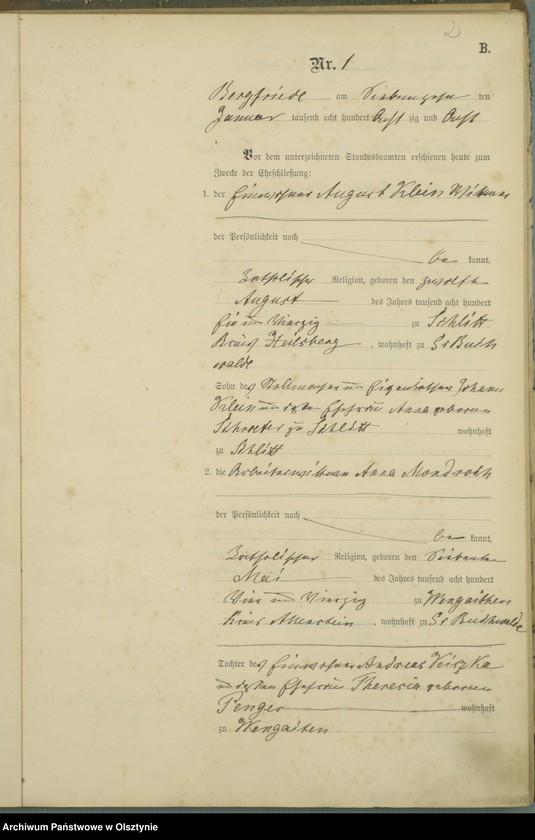 2
B.
Nr. 1
Bergfriede am Siebenzehn ten
Januar tausend acht hundert Acht zig und Acht
Vor dem unterzeichneten Standesbeamten erschienen heute zum
Zwecke der Eheschließung:
1. der Einwohner August Klein Wittwer
der Persönlichkeit nach
be kannt,
katholischer Religion, geboren den zwölften
August des Jahres tausend acht hundert
Ein und Vierzig zu Schlitt
Kreis Heilsberg, wohnhaft zu Gr Buch
walde
Sohn des Stellmacher und Eigenkäthner Johann
Klein und dessen Ehefrau Anna geborenen
Schroeter zu Schlitt wohnhaft
zu Schlitt
2. die Arbeiterwittwe Anna Mondroch
der Persönlichkeit nach
be kannt,
katholischer Religion, geboren den Siebenten
Mai des Jahres tausend acht hundert
Vier und Vierzig zu Wengaithen
Kreis Allenstein, wohnhaft zu Gr Buchwalde
Tochter des Einwohner Andreas
und dessen Ehefrau Theresia geborenen
Penger wohnhaft
zu Wengaiten
Archiwum Państwowe w Olsztynie